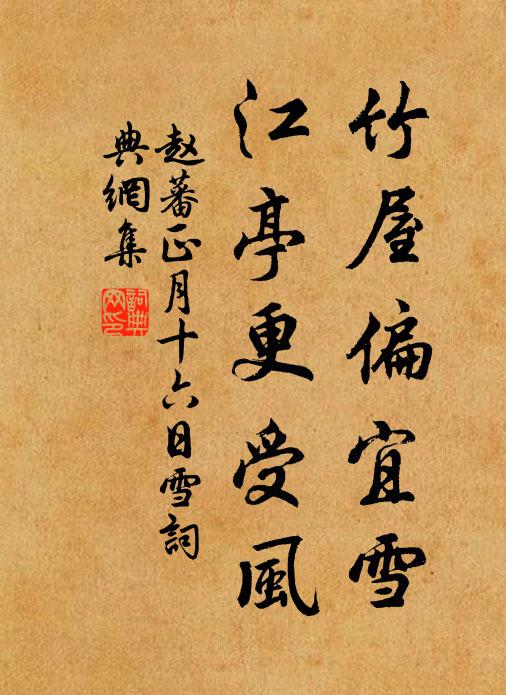 竹屋偏宜雪
江亭更受風
赵蕃正月十六日雪詞
典網集
詞典
网印